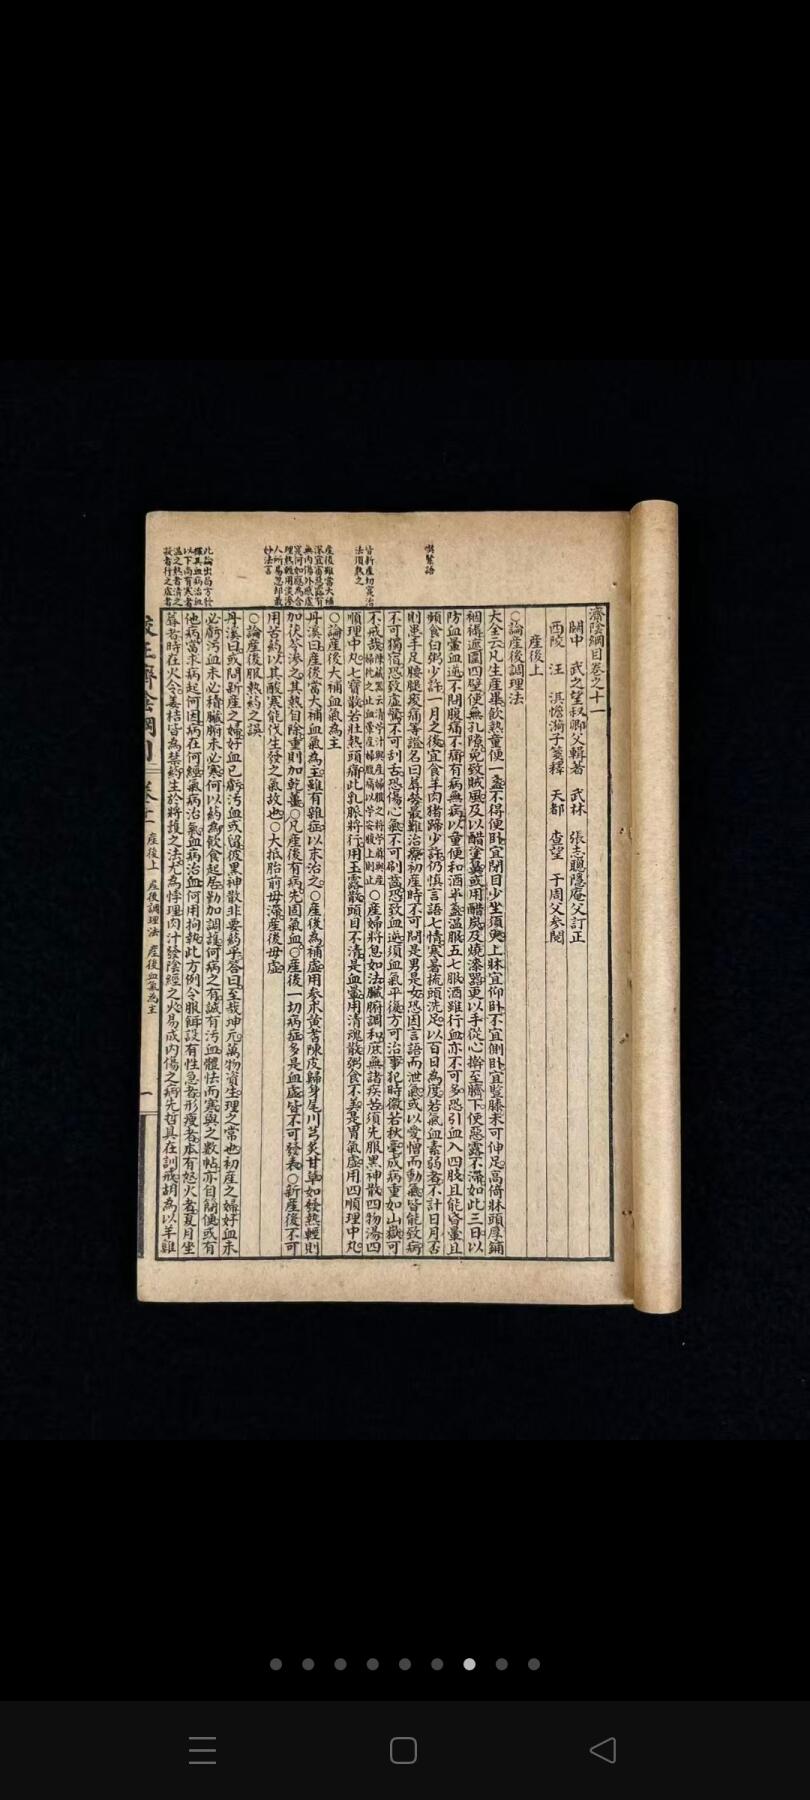 濟陰綱目卷之十一
關中　武之望叔卿父輯著　武林　張志聰隱庵父訂正
西陵　汪　淇憺漪子箋釋　天都　查望　于周父參閱
產後上
○論產後調理法
大全云凡生產畢飲熱童便一盞不得便臥宜閉目少坐須臾上牀宜仰臥不宜側臥宜豎膝未可伸足高倚牀頭厚鋪
裀褥遮圍四壁使無孔隙免致賊風及以醋塗鼻或用醋炭及燒漆器更以手從心擀至臍下使惡露不滯如此三日以
防血暈血逆不問腹痛不痛有病無病以童便和酒半盞溫服五七服酒雖行血亦不可多恐引血入四肢且能昏暈且
頻食白粥少許一月之後宜食羊肉猪蹄少許仍慎言語七情寒暑梳頭洗足以百日為度若氣血素弱者不計日月否
則患手足腰腿痠痛等證名曰蓐勞最難治療初產時不可問是男是女恐因言語而泄氣或以愛憎而動氣皆能致病
不可獨宿恐致虛驚不可刮舌恐傷心氣不可刷齒恐致血逆須血氣平復方可治事犯時微若秋毫成病重如山嶽可
不戒哉○產婦將息如法臟腑調和庶無諸疾苦須先服黑神散四物湯四
順理中丸七寶散若壯熱頭痛此乳脈將行用玉露散頭目不清是血暈用清魂散粥食不美是胃氣虛用四順理中丸
○論產後大補血氣為主
丹溪曰產後當大補血氣為主雖有雜症以末治之○產後為補虛用參朮黃耆陳皮歸身尾川芎炙甘草如發熱輕則
加茯苓滲之其熱自除重則加乾薑○凡產後有病先固氣血○產後一切病症多是血虛皆不可發表○新產後不可
用芍藥以其酸寒能伐生發之氣故也○大抵胎前毋滯產後毋虛
○論產後服熱藥之誤
丹溪曰或問新產之婦好血已虧汚血或留彼黑神散非要藥乎答曰至哉坤元萬物資生理之常也初產之婦好血未
必虧汚血未必積臟腑未必寒何以藥為飲食起居勤加調護何病之有誠有汚血體怯而寒與之數帖亦自簡便或有
他病當求病起何因病在何經氣病治氣血病治血何用拘執此方例令服餌設有性急者形瘦者本有怒火者夏月坐
蓐者時在火令薑桂皆為禁藥至於將護之法尤為悖理肉汁發陰經之火易成內傷之病先哲具在訓戒胡為以羊雞
喫緊語
皆新產切實治
法須熟之
產後雖當大補
人所易忽却最
妙法言
此論出局方發
產後上　產後調理法　產後血氣為主
一